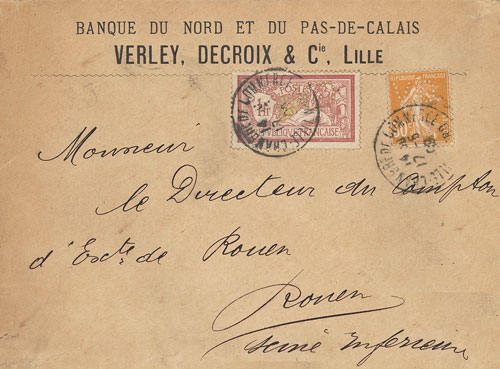 BANQUE DU NORD ET DU PAS-DE-CALAIS
VERLEY, DECROIX & Cie, LILLE
POSTES
RÉPUBLIQUE FRANÇAISE
REPUBLIQUE FRANÇAISE
Monsieur
le Directeur du Comptoir
d'Escte de Rouen
Rouen
Seine Inférieure